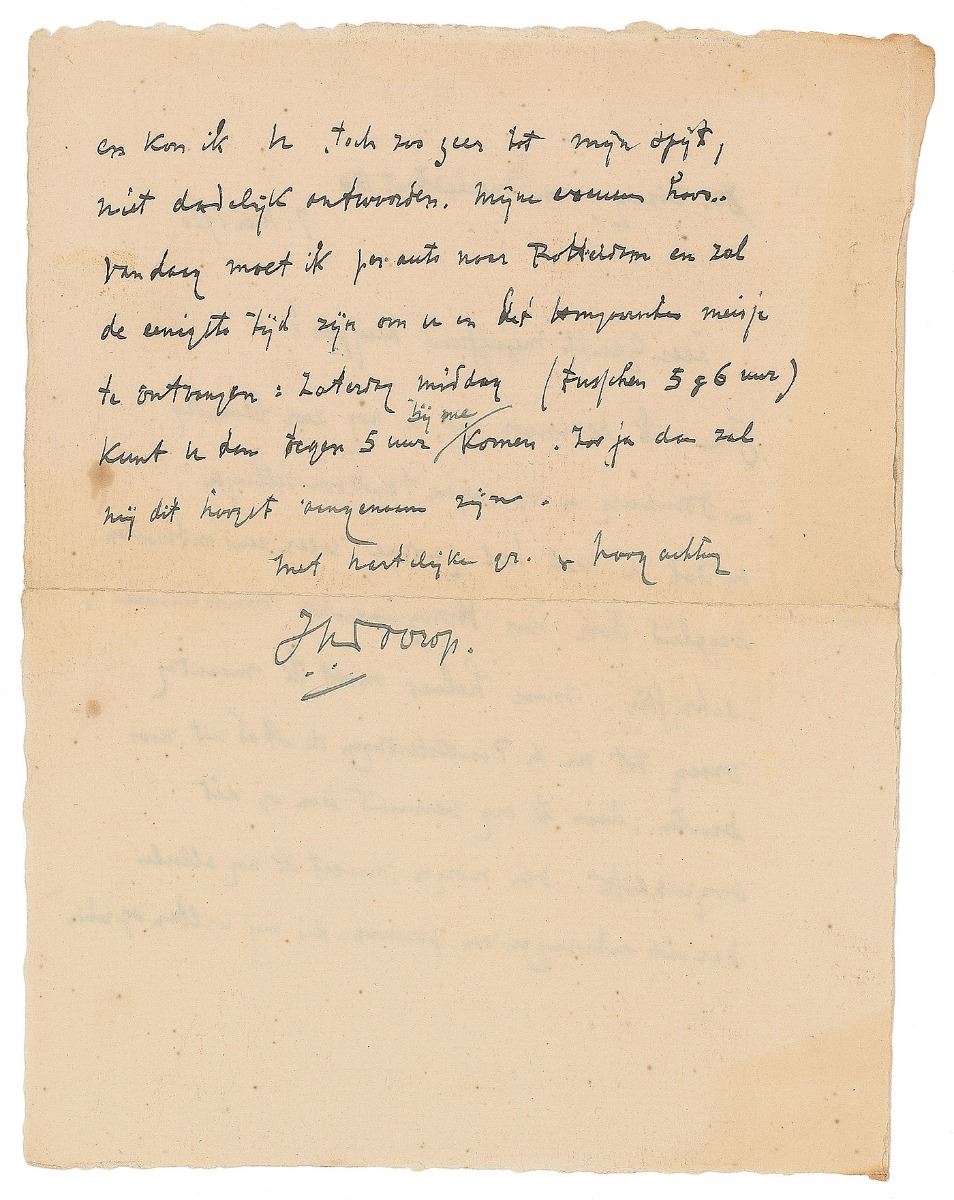 en kon ik U toch zoo zeer tot mijn spijt,
niet dadelijk antwoorden. Mijne excuses hoor..
Vandaag moet ik per auto naar Rotterdam en zal
de eenigste tijd zijn om u en het meisje
te ontvangen: Zaterdag middag (tusschen 5 & 6 uur)
bij me
Kunt u dan tegen 5 uur komen. Zoo ja dan zal
mij dit hoogst aangenaam zijn.
Met hartelijke gr. & hoogachting
JthToorop.